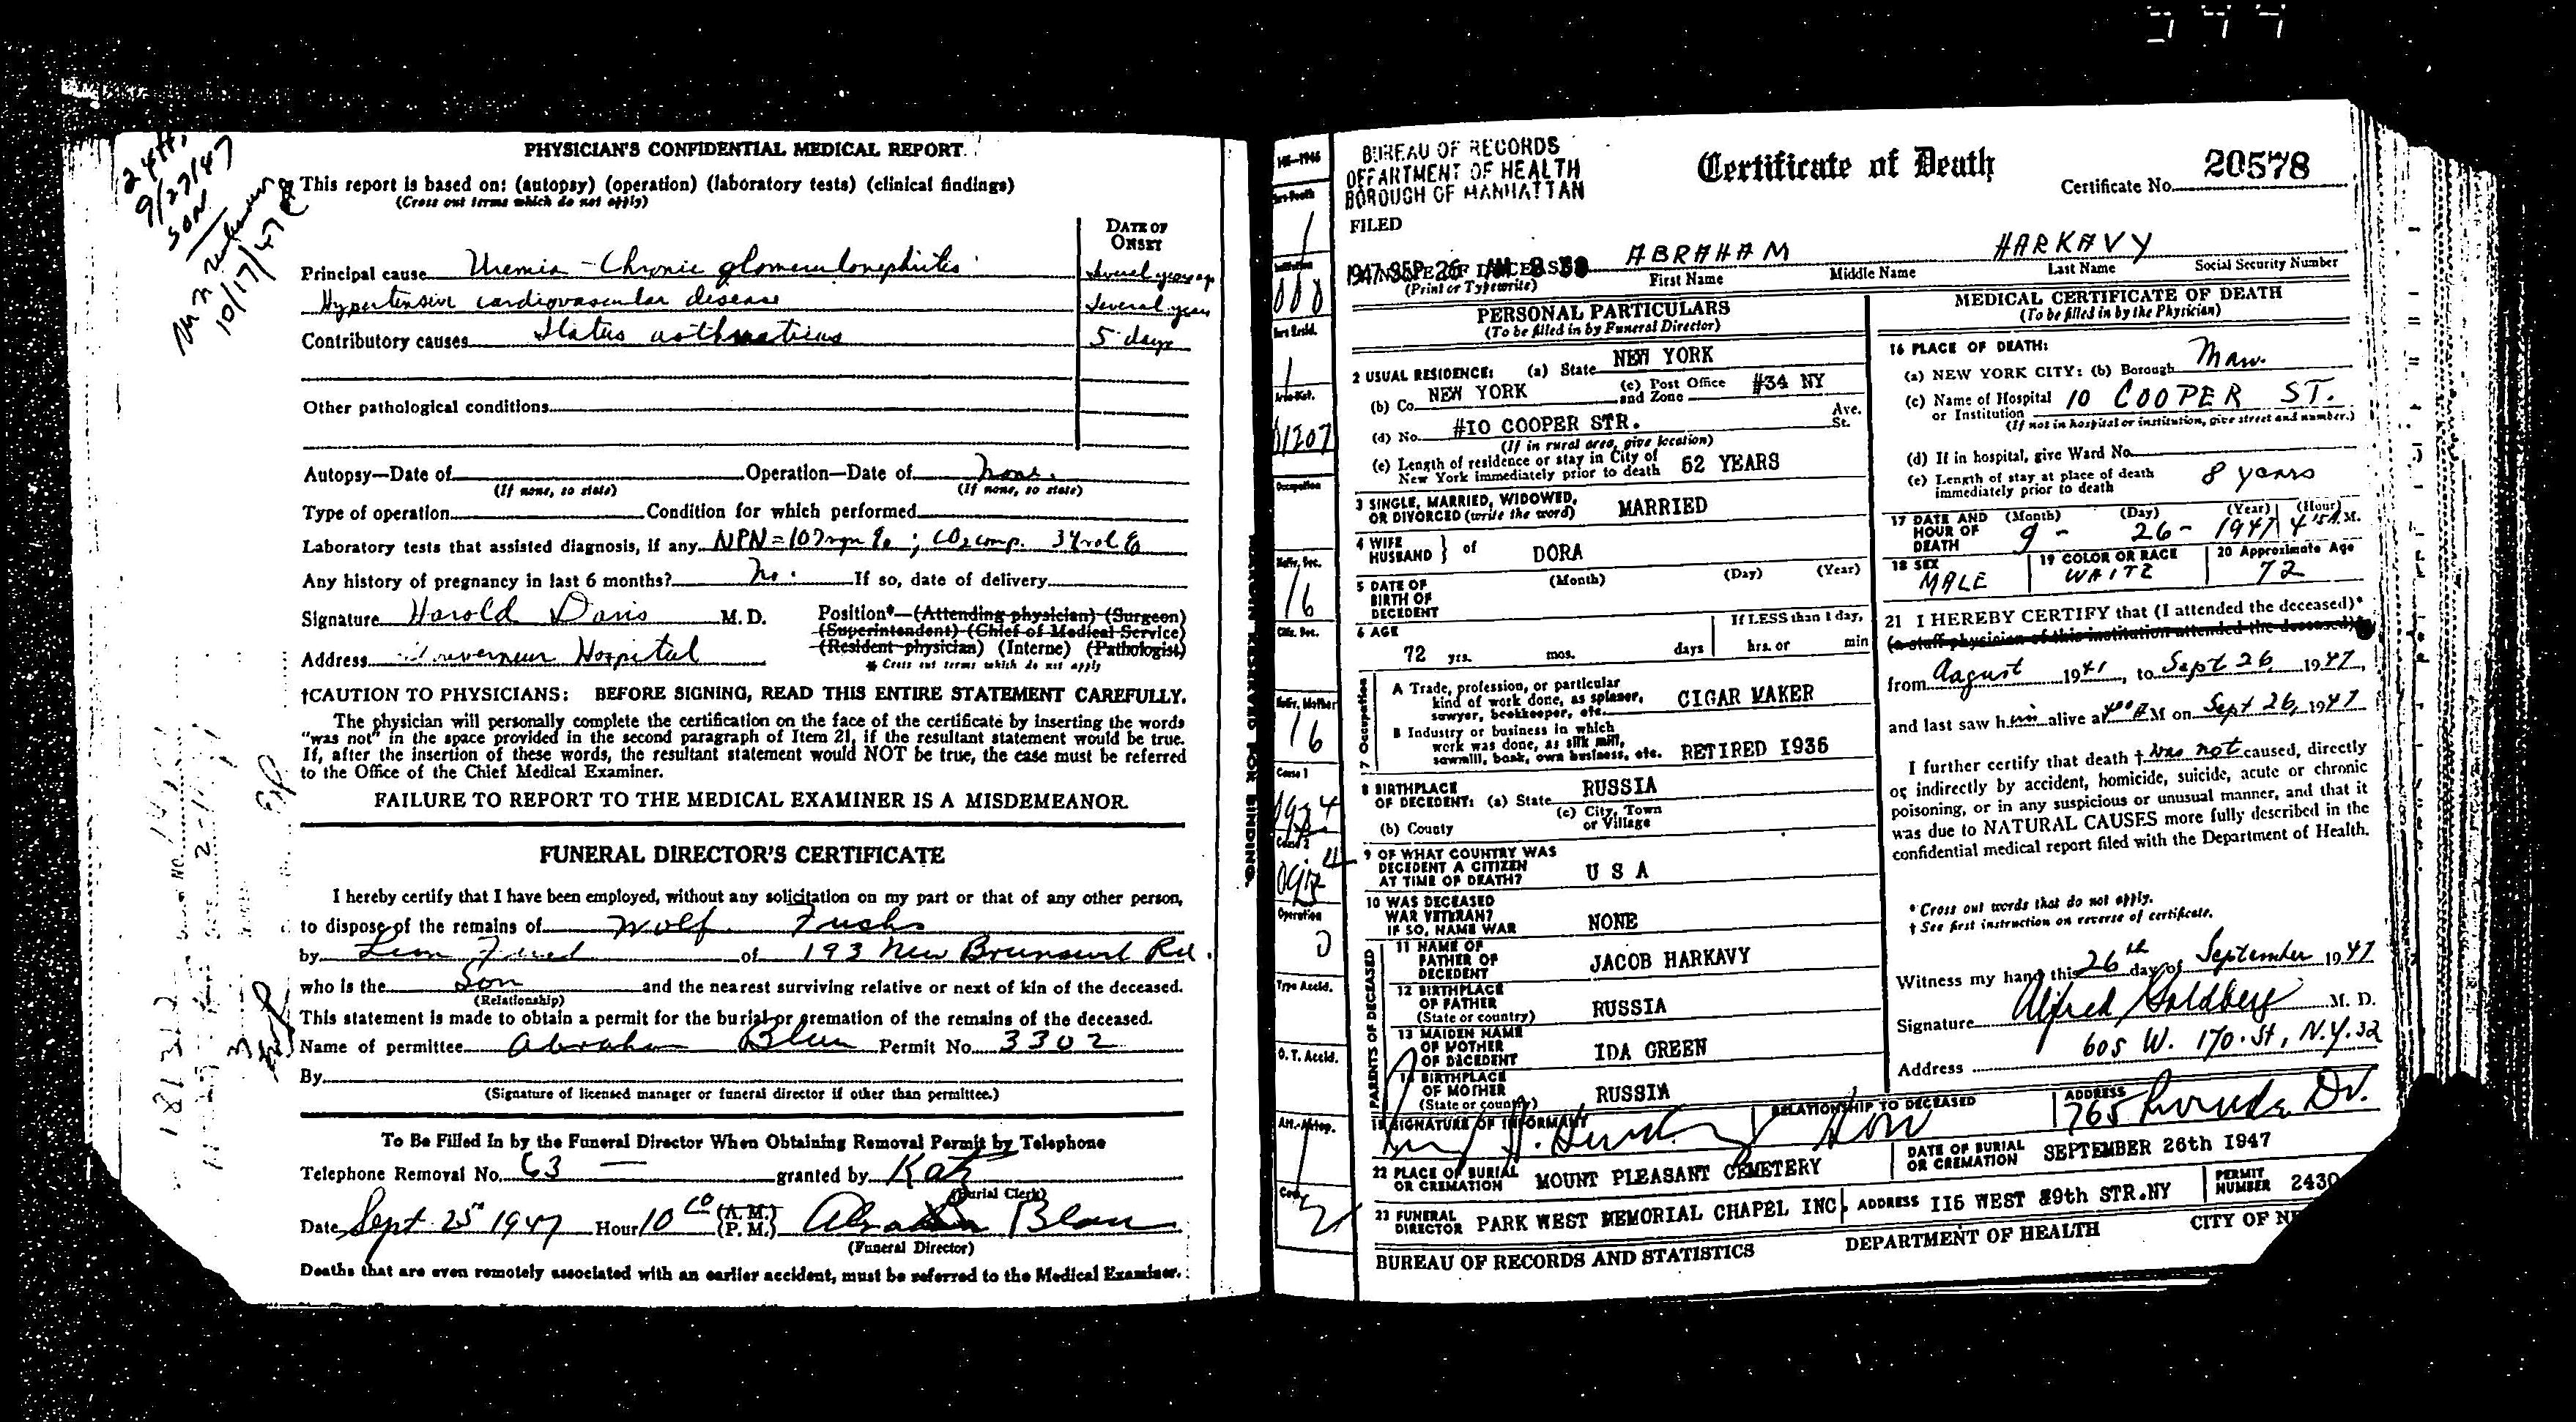 PHYSICIAN'S CONFIDENTIAL MEDICAL REPORT.
This report is based on: (autopsy) (operation) (laboratory tests) (clinical findings)
(Cross out terms which do not apply)
DATE OF
ONSET
Principal cause Uremia - Chronic glomerulonephritis several years ago
Hypertensive cardiovascular disease several years
Contributory causes Status asthmaticus 5 days
Other pathological conditions
Autopsy—Date of Operation—Date of none.
(If none, so state) (If none, so state)
Type of operation Condition for which performed
Laboratory tests that assisted diagnosis, if any NPN = 107 mgm % ; CO2 comp. 34 vol %
Any history of pregnancy in last 6 months? no. If so, date of delivery
Signature Harold Davis M. D. Position*—(Attending physician) (Surgeon)
(Superintendent) (Chief of Medical Service)
Address Gouverneur Hospital (Resident physician) (Interne) (Pathologist)
* Cross out terms which do not apply
†CAUTION TO PHYSICIANS: BEFORE SIGNING, READ THIS ENTIRE STATEMENT CAREFULLY.
The physician will personally complete the certification on the face of the certificate by inserting the words
"was not" in the space provided in the second paragraph of Item 21, if the resultant statement would be true.
If, after the insertion of these words, the resultant statement would NOT be true, the case must be referred
to the Office of the Chief Medical Examiner.
FAILURE TO REPORT TO THE MEDICAL EXAMINER IS A MISDEMEANOR.
FUNERAL DIRECTOR'S CERTIFICATE
I hereby certify that I have been employed, without any solicitation on my part or that of any other person,
to dispose of the remains of Wolf Fuchs
by Leon of 193 New Brunswick Rd.
who is the Son and the nearest surviving relative or next of kin of the deceased.
(Relationship)
This statement is made to obtain a permit for the burial or cremation of the remains of the deceased.
Name of permittee Abraham Blau Permit No. 3302
By
(Signature of licensed manager or funeral director if other than permittee.)
To Be Filled In by the Funeral Director When Obtaining Removal Permit by Telephone
Telephone Removal No. 63 granted by Katz
(Burial Clerk)
Date Sept 25 1947 Hour 10 00 (A. M.) (P. M.) Abraham Blau
(Funeral Director)
Deaths that are even remotely associated with an earlier accident, must be referred to the Medical Examiner.
9/27/47
SON
10/17/47
MARGIN RESERVED FOR BINDING.
BUREAU OF RECORDS
DEPARTMENT OF HEALTH
BOROUGH OF MANHATTAN
Certificate of Death
Certificate No. 20578
FILED
1947 SEP 26 AM 8 39
1 NAME OF DECEASED ABRAHAM HARKAVY
(Print or Typewrite) First Name Middle Name Last Name Social Security Number
PERSONAL PARTICULARS
(To be filled in by Funeral Director)
2 USUAL RESIDENCE: (a) State NEW YORK
(b) Co. NEW YORK (c) Post Office and Zone #34 NY
(d) No. #10 COOPER STR. Ave. St.
(If in rural area, give location)
(e) Length of residence or stay in City of
New York immediately prior to death 62 YEARS
3 SINGLE, MARRIED, WIDOWED,
OR DIVORCED (write the word) MARRIED
4 WIFE
HUSBAND } of DORA
5 DATE OF
BIRTH OF
DECEDENT
(Month) (Day) (Year)
6 AGE If LESS than 1 day,
72 yrs. mos. days hrs. or min
7 Occupation
A Trade, profession, or particular
kind of work done, as spinner,
sawyer, bookkeeper, etc. CIGAR MAKER
B Industry or business in which
work was done, as silk mill,
sawmill, bank, own business, etc. RETIRED 1936
8 BIRTHPLACE
OF DECEDENT: (a) State RUSSIA
(b) County (c) City, Town
or Village
9 OF WHAT COUNTRY WAS
DECEDENT A CITIZEN
AT TIME OF DEATH? U S A
10 WAS DECEASED
WAR VETERAN?
IF SO, NAME WAR NONE
PARENTS OF DECEASED
11 NAME OF
FATHER OF
DECEDENT JACOB HARKAVY
12 BIRTHPLACE
OF FATHER
(State or country) RUSSIA
13 MAIDEN NAME
OF MOTHER
OF DECEDENT IDA GREEN
14 BIRTHPLACE
OF MOTHER
(State or country) RUSSIA
MEDICAL CERTIFICATE OF DEATH
(To be filled in by the Physician)
16 PLACE OF DEATH:
(a) NEW YORK CITY: (b) Borough Man.
(c) Name of Hospital
or Institution 10 COOPER ST.
(If not in hospital or institution, give street and number.)
(d) If in hospital, give Ward No.
(e) Length of stay at place of death
immediately prior to death 8 years
17 DATE AND
HOUR OF
DEATH (Month) (Day) (Year) (Hour)
9 - 26 - 1947 4 15 A.M.
18 SEX MALE 19 COLOR OR RACE WHITE 20 Approximate Age 72
21 I HEREBY CERTIFY that (I attended the deceased)*
(a staff physician of this institution attended the deceased)*
from August 1941, to Sept 26, 1947,
and last saw him alive at 4 00 A M on Sept 26, 1947
I further certify that death † was not caused, directly
or indirectly by accident, homicide, suicide, acute or chronic
poisoning, or in any suspicious or unusual manner, and that it
was due to NATURAL CAUSES more fully described in the
confidential medical report filed with the Department of Health.
* Cross out words that do not apply.
† See first instruction on reverse of certificate.
Witness my hand this 26th day of September 1947
Signature Alfred Goldberg M. D.
Address 605 W. 170. St, N.Y. 32
15 SIGNATURE OF INFORMANT RELATIONSHIP TO DECEASED SON ADDRESS 765 Dr.
22 PLACE OF BURIAL
OR CREMATION MOUNT PLEASANT CEMETERY DATE OF BURIAL
OR CREMATION SEPTEMBER 26th 1947
23 FUNERAL
DIRECTOR PARK WEST MEMORIAL CHAPEL INC. ADDRESS 115 WEST 79th STR.NY PERMIT
NUMBER 2430
BUREAU OF RECORDS AND STATISTICS DEPARTMENT OF HEALTH CITY OF